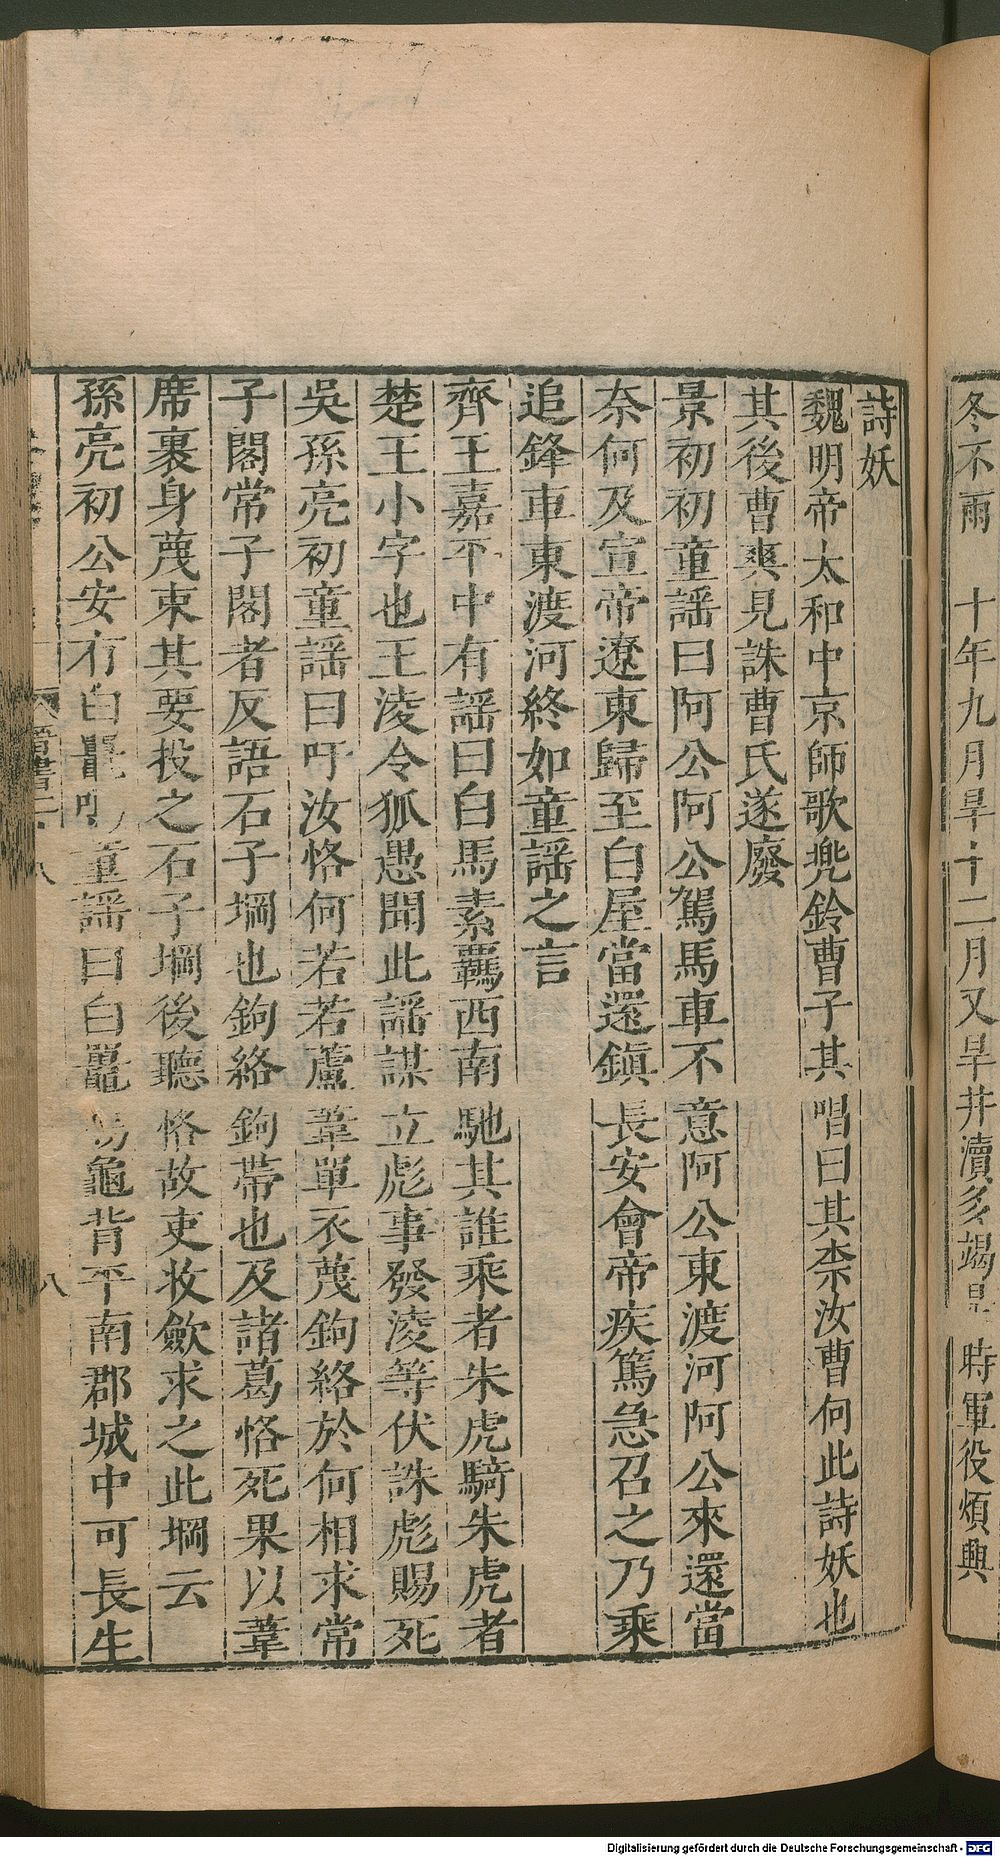 冬不雨　十年九月旱十二月又旱井瀆多竭是時軍役煩興
詩妖
魏明帝太和中京師歌兠鈴曹子其唱曰其柰汝曹何此詩妖也
其後曹爽見誅曹氏遂廢
景初初童謡曰阿公阿公駕馬車不意阿公東渡河阿公來還當
奈何及宣帝遼東歸至白屋當還鎮長安會帝疾篤急召之乃乘
追鋒車東渡河終如童謡之言
齊王嘉平中有謡曰白馬素羈西南馳其誰乘者朱虎騎朱虎者
楚王小字也王淩令狐愚聞此謡謀立彪事發淩等伏誅彪賜死
吳孫亮初童謡曰吁汝恪何若若蘆葦單衣蔑鉤絡於何相求常
子閣常子閣者反語石子堈也鉤絡鉤帶也及諸葛恪死果以葦
席裹身蔑束其要投之石子堈後聽恪故吏收斂求之此堈云
孫亮初公安有白鼉鳴童謡曰白鼉鳴龜背平南郡城中可長生
晉書二
八
八
Digitalisierung gefördert durch die Deutsche Forschungsgemeinschaft - DFG